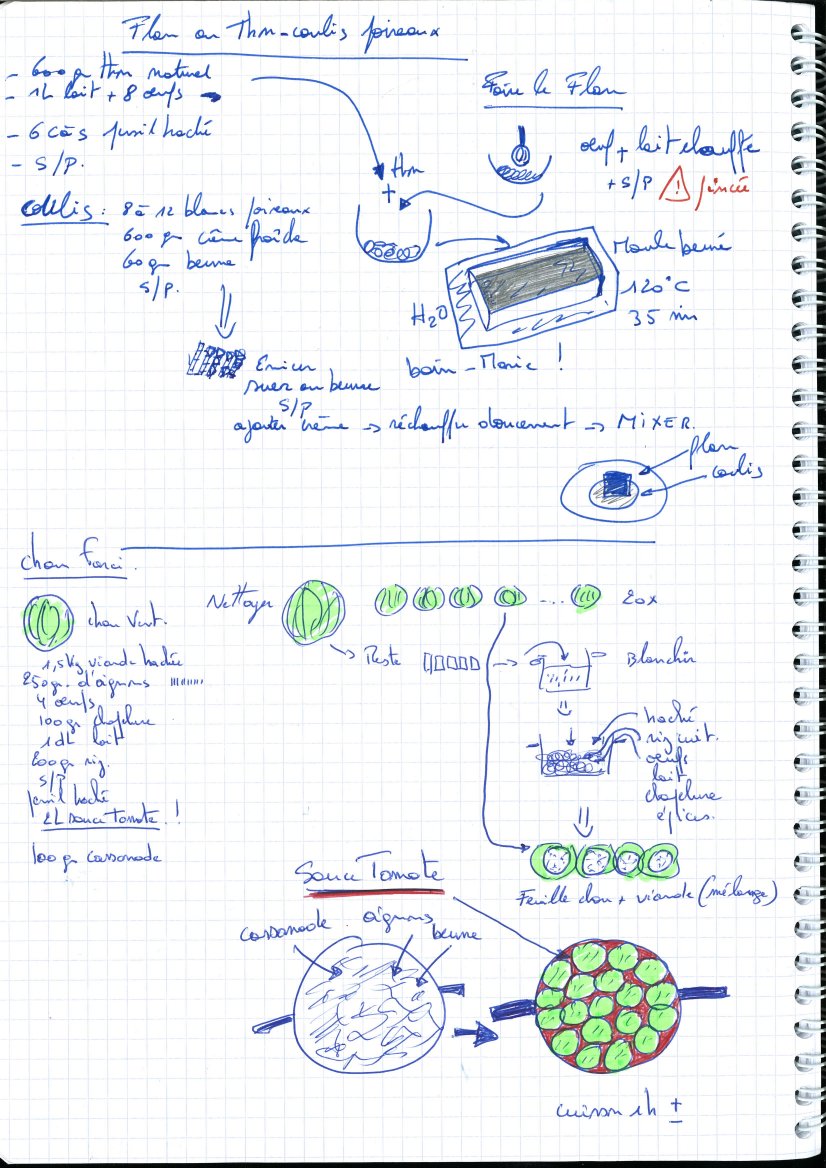 Flan au Thon-coulis poireaux
- 600 gr thon naturel
- 1L lait + 8 œufs
- 6 càs persil haché
- S/P.
Faire le Flan
œuf + lait chauffé
+ S/P ! pincée
thon
+
Coulis : 8 à 12 blancs poireaux
600 gr crème fraîche
60 gr beurre
S/P.
Moule beurré
120°C
35 min
H2O
bain-Marie !
Emincer
suer au beurre
S/P
ajouter crème → réchauffer doucement → MIXER.
flan
coulis
chou Farci.
chou Vert.
Nettoyer
... 20x
Reste
Blanchir
1,5Kg viande hachée
250gr. d'oignons
4 œufs
100gr chapelure
1 dL lait
200gr riz.
S/P
persil haché
2L sauce Tomate. !
100gr cassonade
haché
riz cuit.
œufs
lait
chapelure
épices.
Feuille chou + viande (mélange)
Sauce Tomate
cassonade. oignons
beurre
cuisson 1h ±